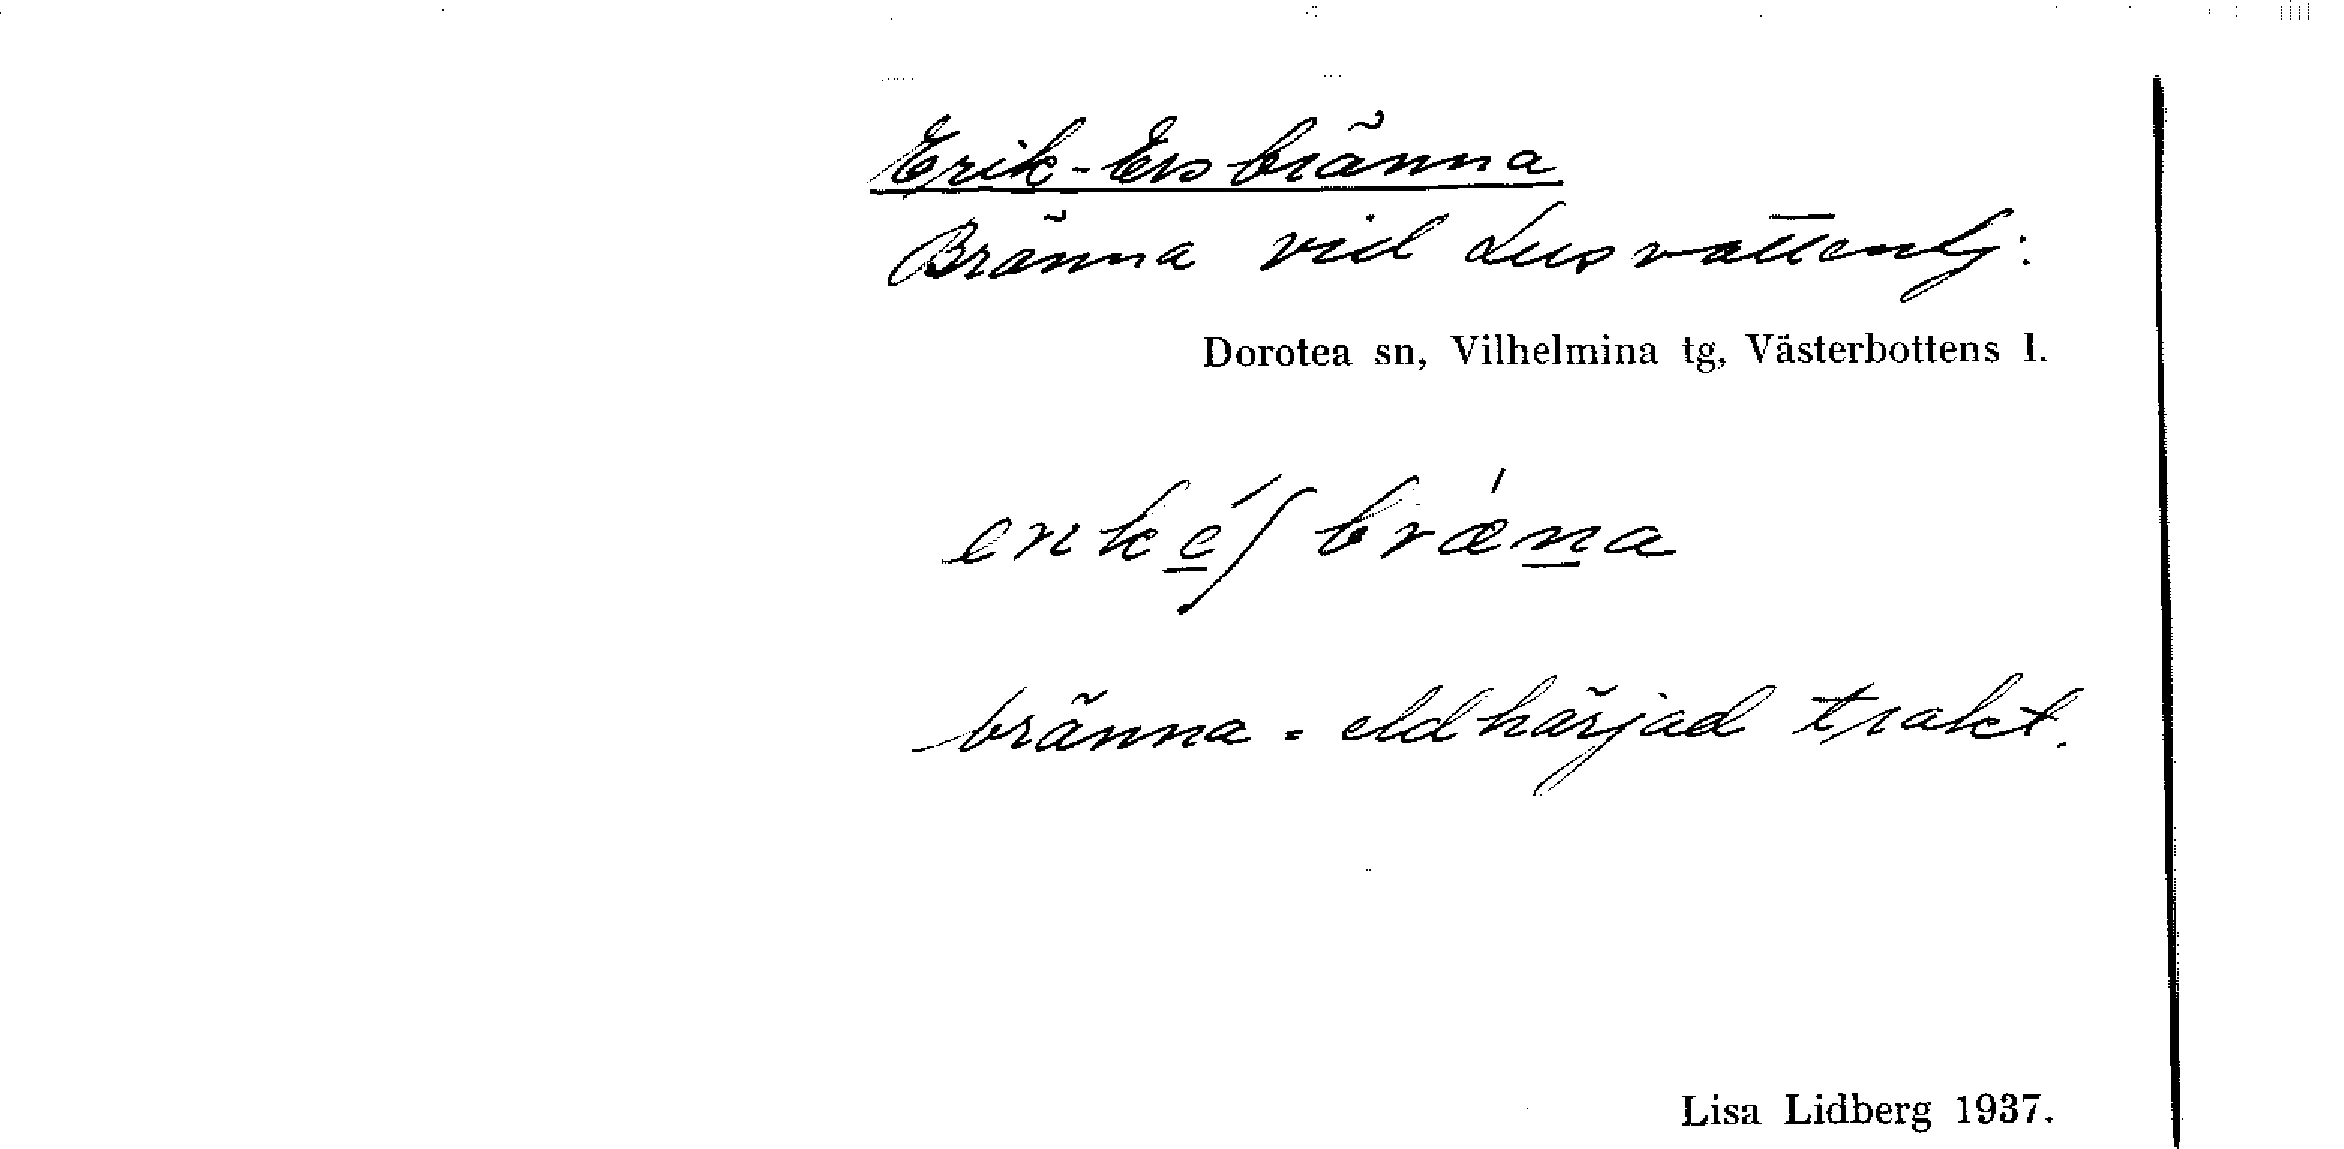 Erik-Ersbränna
Bränna vid Lusvattentj:
Dorotea sn, Vilhelmina tg, Västerbottens l.
bränna = eldhärjad trakt.
Lisa Lidberg 1937.